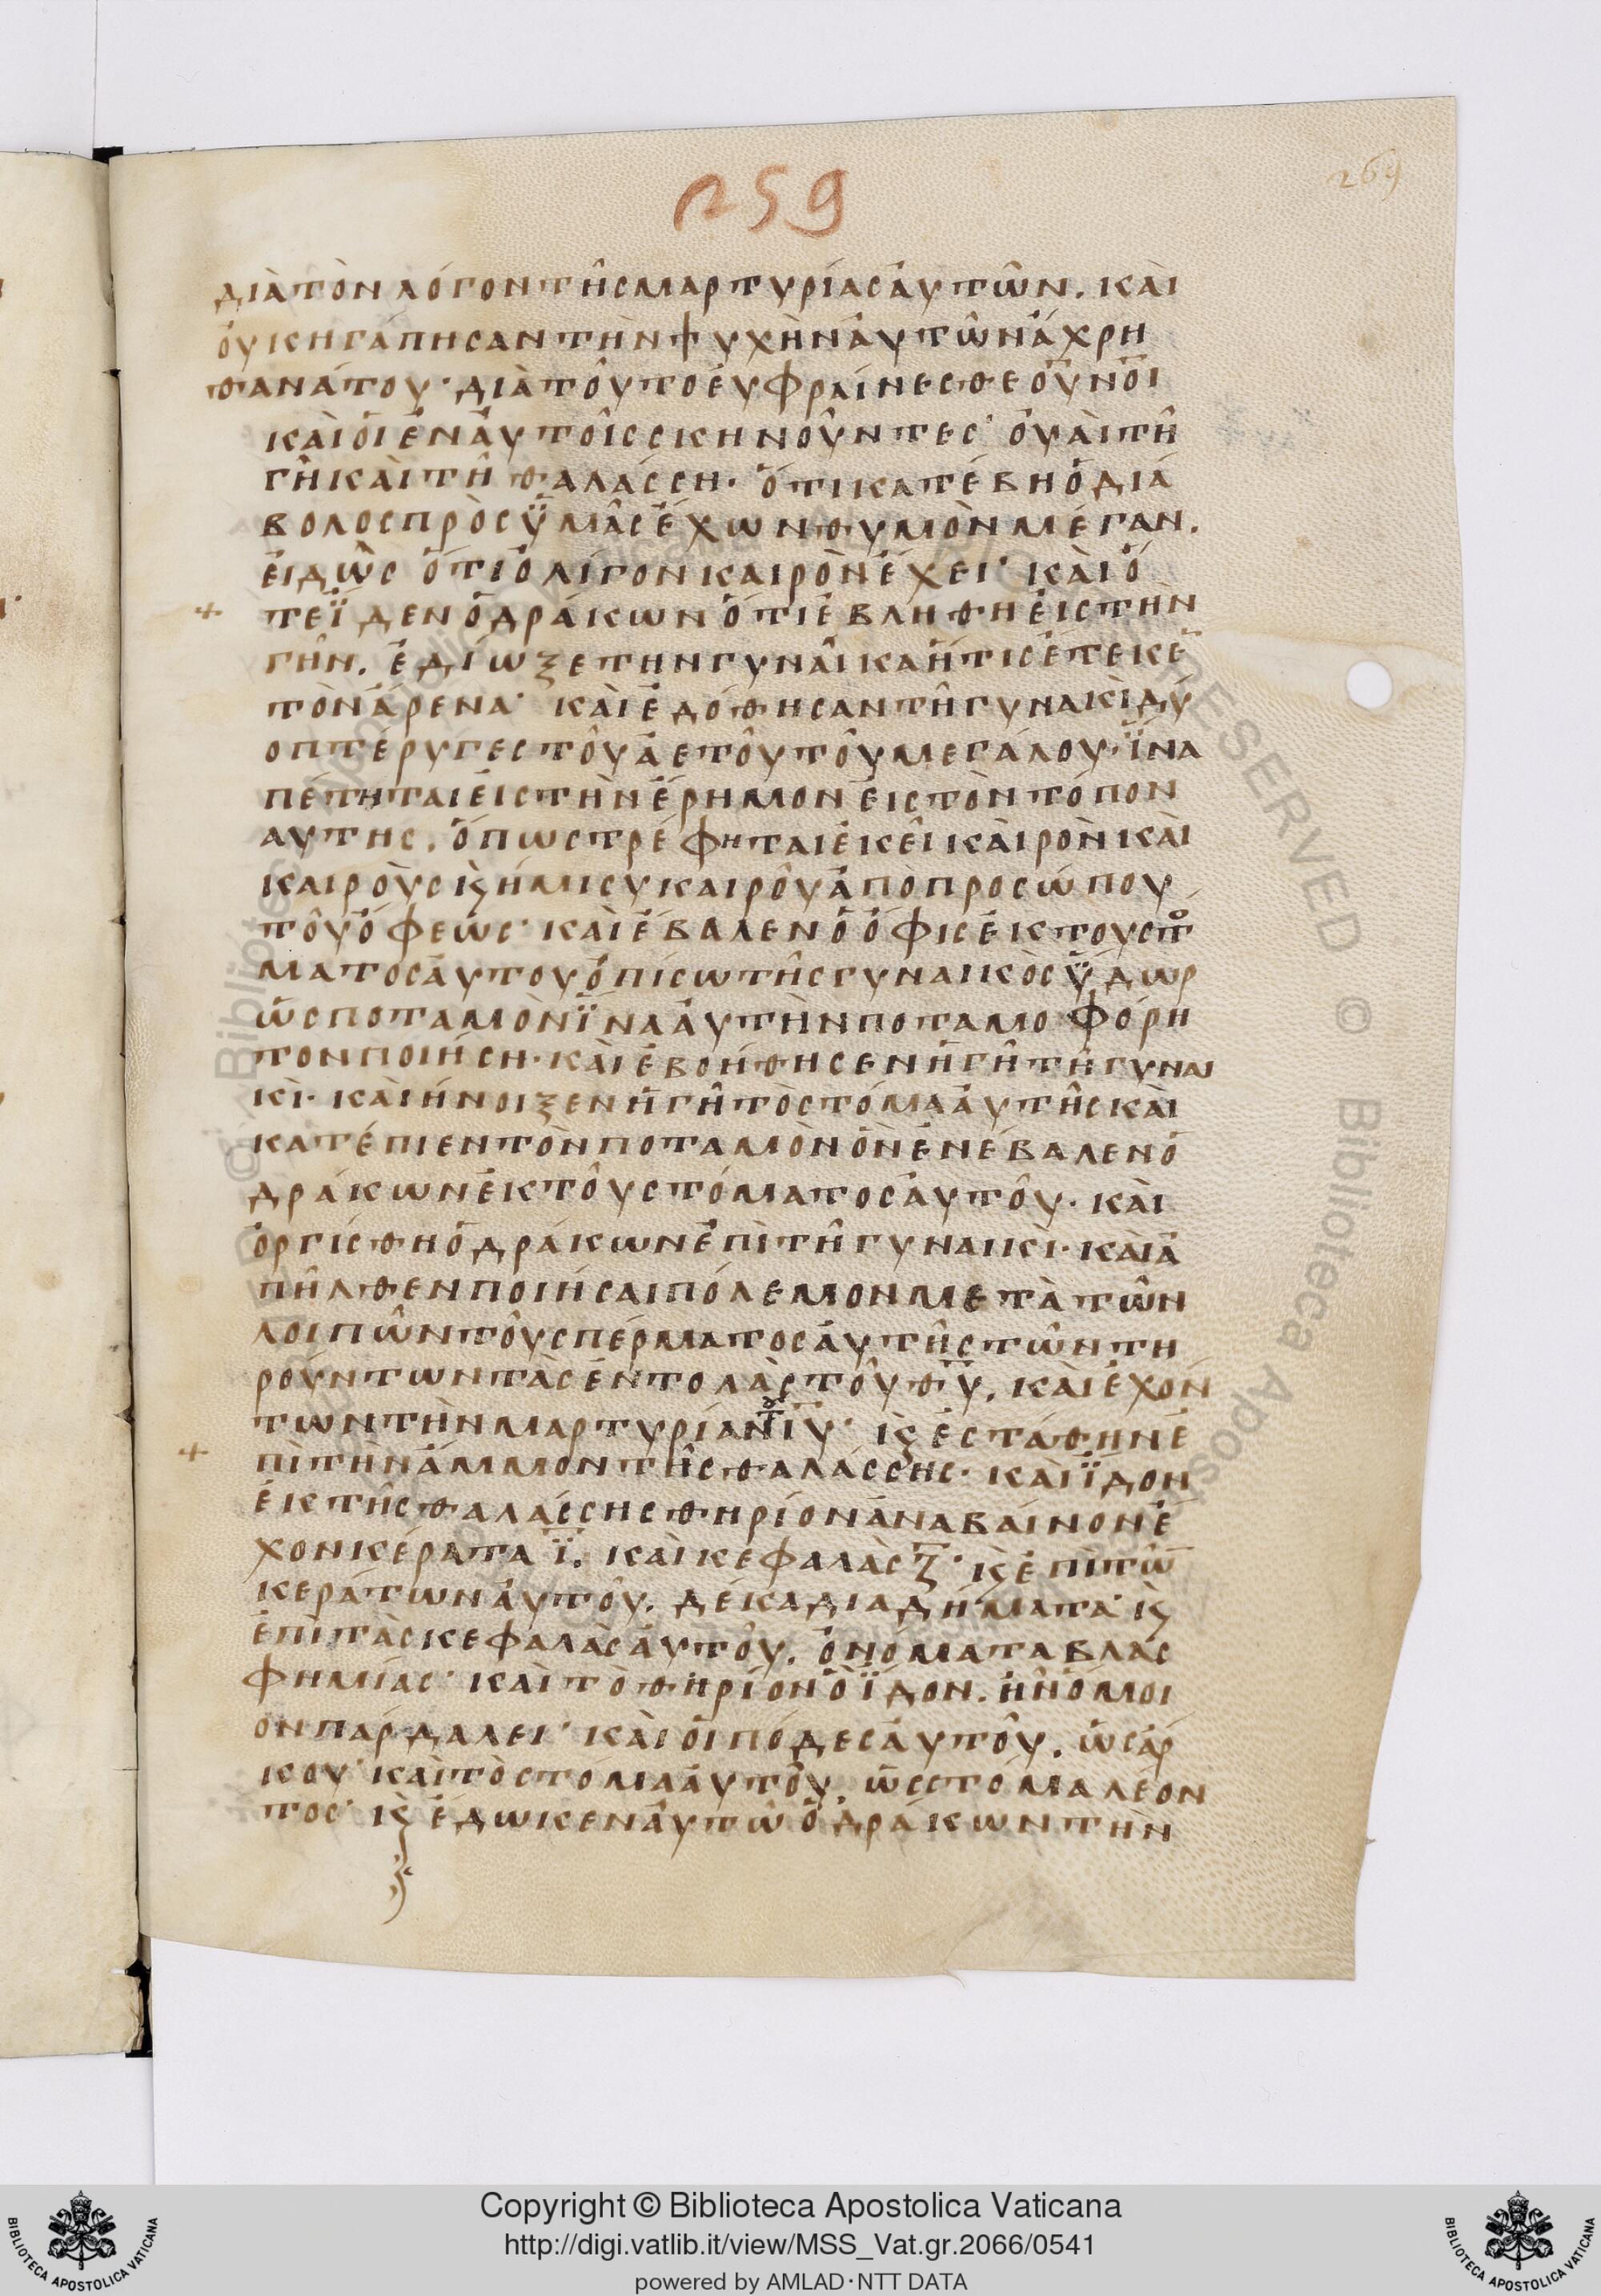 259
269
διὰτὸνλόγοντῆςμαρτυρίαςἀυτῶν. καὶ
ὀυκηγάπησαντὴνψυχὴνἀυτῶνἄχρη
θανάτου· διὰτοῦτοἐυφραίνεσθεου̅νο̅ι
καὶὁιἐνἀυτοῖςσκηνοῦντες· ὀυὰιτῆ
γῆκαὶτῆθαλάσση· ὅτικατέβηὁδιά
βολοςπρὸςϋ̔μᾶςἔχωνθυμὸνμέγαν.
ἐιδὼς ὅτιὀλίγονκαιρὸνἔχει· κὰιὅ
τεϊ̓δενὁδράκωνὅτιἐβλήθηἐιςτὴν
γῆν. ἐδίωξετηνγυναῖκαἥτιςἔτεκε̅
τὸνἄρενα· κὰιἐδόθησαντῆγυνακὶδύ
οπτέρυγεςτοῦἀετοῦτοῦμεγάλου· ϊ̔́να
πέτηταιἐιςτὴνἔρημονἐιςτὸντόπον
αυτης. ὅπωςτρέφηταιἐκεῖκὰιρὸνκὰι
καιροὺςκ̀ϛήμισυκαιροῦἀποπροσώπου
τοῦὄφεώς· κὰιἔβαλενὁὄφιςἐκτουστο
ματοςἀυτουὀπίσωτῆςγυναικὸςϋ̔́δωρ
ὡςποταμὸνϊ̔́ναἀυτὴνποταμοφόρη
τονποιήση· κὰιἐβοήθησενἡγῆτῆγυναι
κὶ· κὰιἤνοιξενἡγῆτὸστόμαἀυτῆςκὰι
κατέπιεντὸνποταμὸνὃνἐνέβαλενὁ
δράκωνἐκτοῦστόματοςἀυτοῦ· κὰι
ὀργίσθηὁδράκωνἐπὶτῆγυναικι· κὰιἀ
πῆλθενποιήσαιπόλεμονμετὰτῶν
λοιπῶντοῦσπέρματοςἀυτῆςτῶντη
ρούντωντὰςἐντολὰςτοῦθ̅υ̅. κὰιἐχόν
τωντὴνμαρτυρίαντουι̅υ̅· κ̀ϛἐστάθηνἐ
πὶτὴνἄμμοντῆςθαλάσσης· κὰιϊ̓δον
ἐκτῆςθαλάσσηςθηρίονἀναβαίνονἔ
χονκέρατα ϊ̅. κὰικεφαλὰςζ̅· κ̀ϛἐπὶτῶ̅
κεράτωνἀυτοῦ. δέκαδιαδήματα· κ̀ϛ
ἐπὶτὰςκεφαλὰςἀυτοῦ. ὀνόματαβλασ
φημίας· κὰιτὸθηρίονὃϊ̓δον. ἦνὅμοι
ονπάρδαλει· κὰιὁιπόδεςἀυτοῦ. ὡςάρ
κου· κὰιτὸστόμαἀυτοῦ. ὡςστόμαλέον
τος· κ̀ϛἔδωκενἀυτῶὁδράκωντὴν
Copyright © Biblioteca Apostolica Vaticana
http://digi.vatlib.it/view/MSS_Vat.gr.2066/0541
powered by AMLAD·NTT DATA
BIBLIOTECA APOSTOLICA VATICANA
BIBLIOTECA APOSTOLICA VATICANA